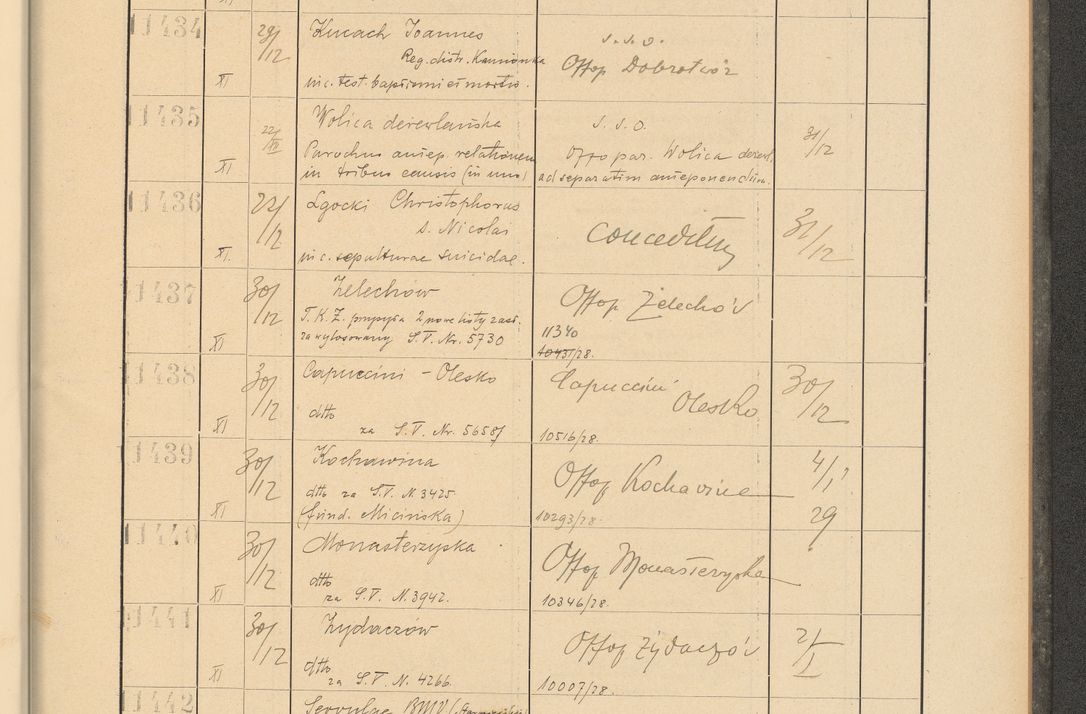 11434 29/12 Kucach Joannes s. s. o.
Reg. distr. Kamionka Offop Dobrotwór
XI in c. test. baptismi et mortis.
11435 22/XII Wolica derewlańska s. s. o. 31/12
Parochus antep. relationem Offo par. Wolica derewl.
XI in tribus causis (in uno) ad separatim anteponendum.
11436 22/12 Lgocki Christophorus conceditur 31/12
s. Nicolai
XI. in c. sepulturae suicidae.
11437 30/12 Żelechów Offop Żelechów
T. K. Z. przysyła 2 nowe listy zast.
za wylosowany S.V. Nr. 5730 11340
XI 10431/28.
11438 30/12 Capuccini - Olesko Capuccini Olesko 30/12
dtto
XI za S.V. Nr. 5658 10516/28.
11439 30/12 Kochawina Offop Kochavina 4/1 29
dtto za S.V. N. 3425
XI (fund. Micińska) 10293/28.
11440 30/12 Monasterzyska Offop Monasterzyska
dtto
XI za S.V. N. 3942. 10346/28.
11441 30/12 Żydaczów Offop Żydaczów 2/I
dtto
XI za S.V. N. 4266. 10007/28.
11442 Servulae BMV